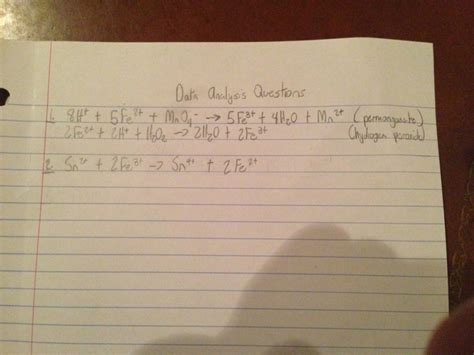 Data Analysis Questions
1. 8H⁺ + 5Fe²⁺ + MnO₄⁻ → 5Fe³⁺ + 4H₂O + Mn²⁺ (permanganate)
2Fe²⁺ + 2H⁺ + H₂O₂ → 2H₂O + 2Fe³⁺ (hydrogen peroxide)
2. Sn²⁺ + 2Fe³⁺ → Sn⁴⁺ + 2Fe²⁺